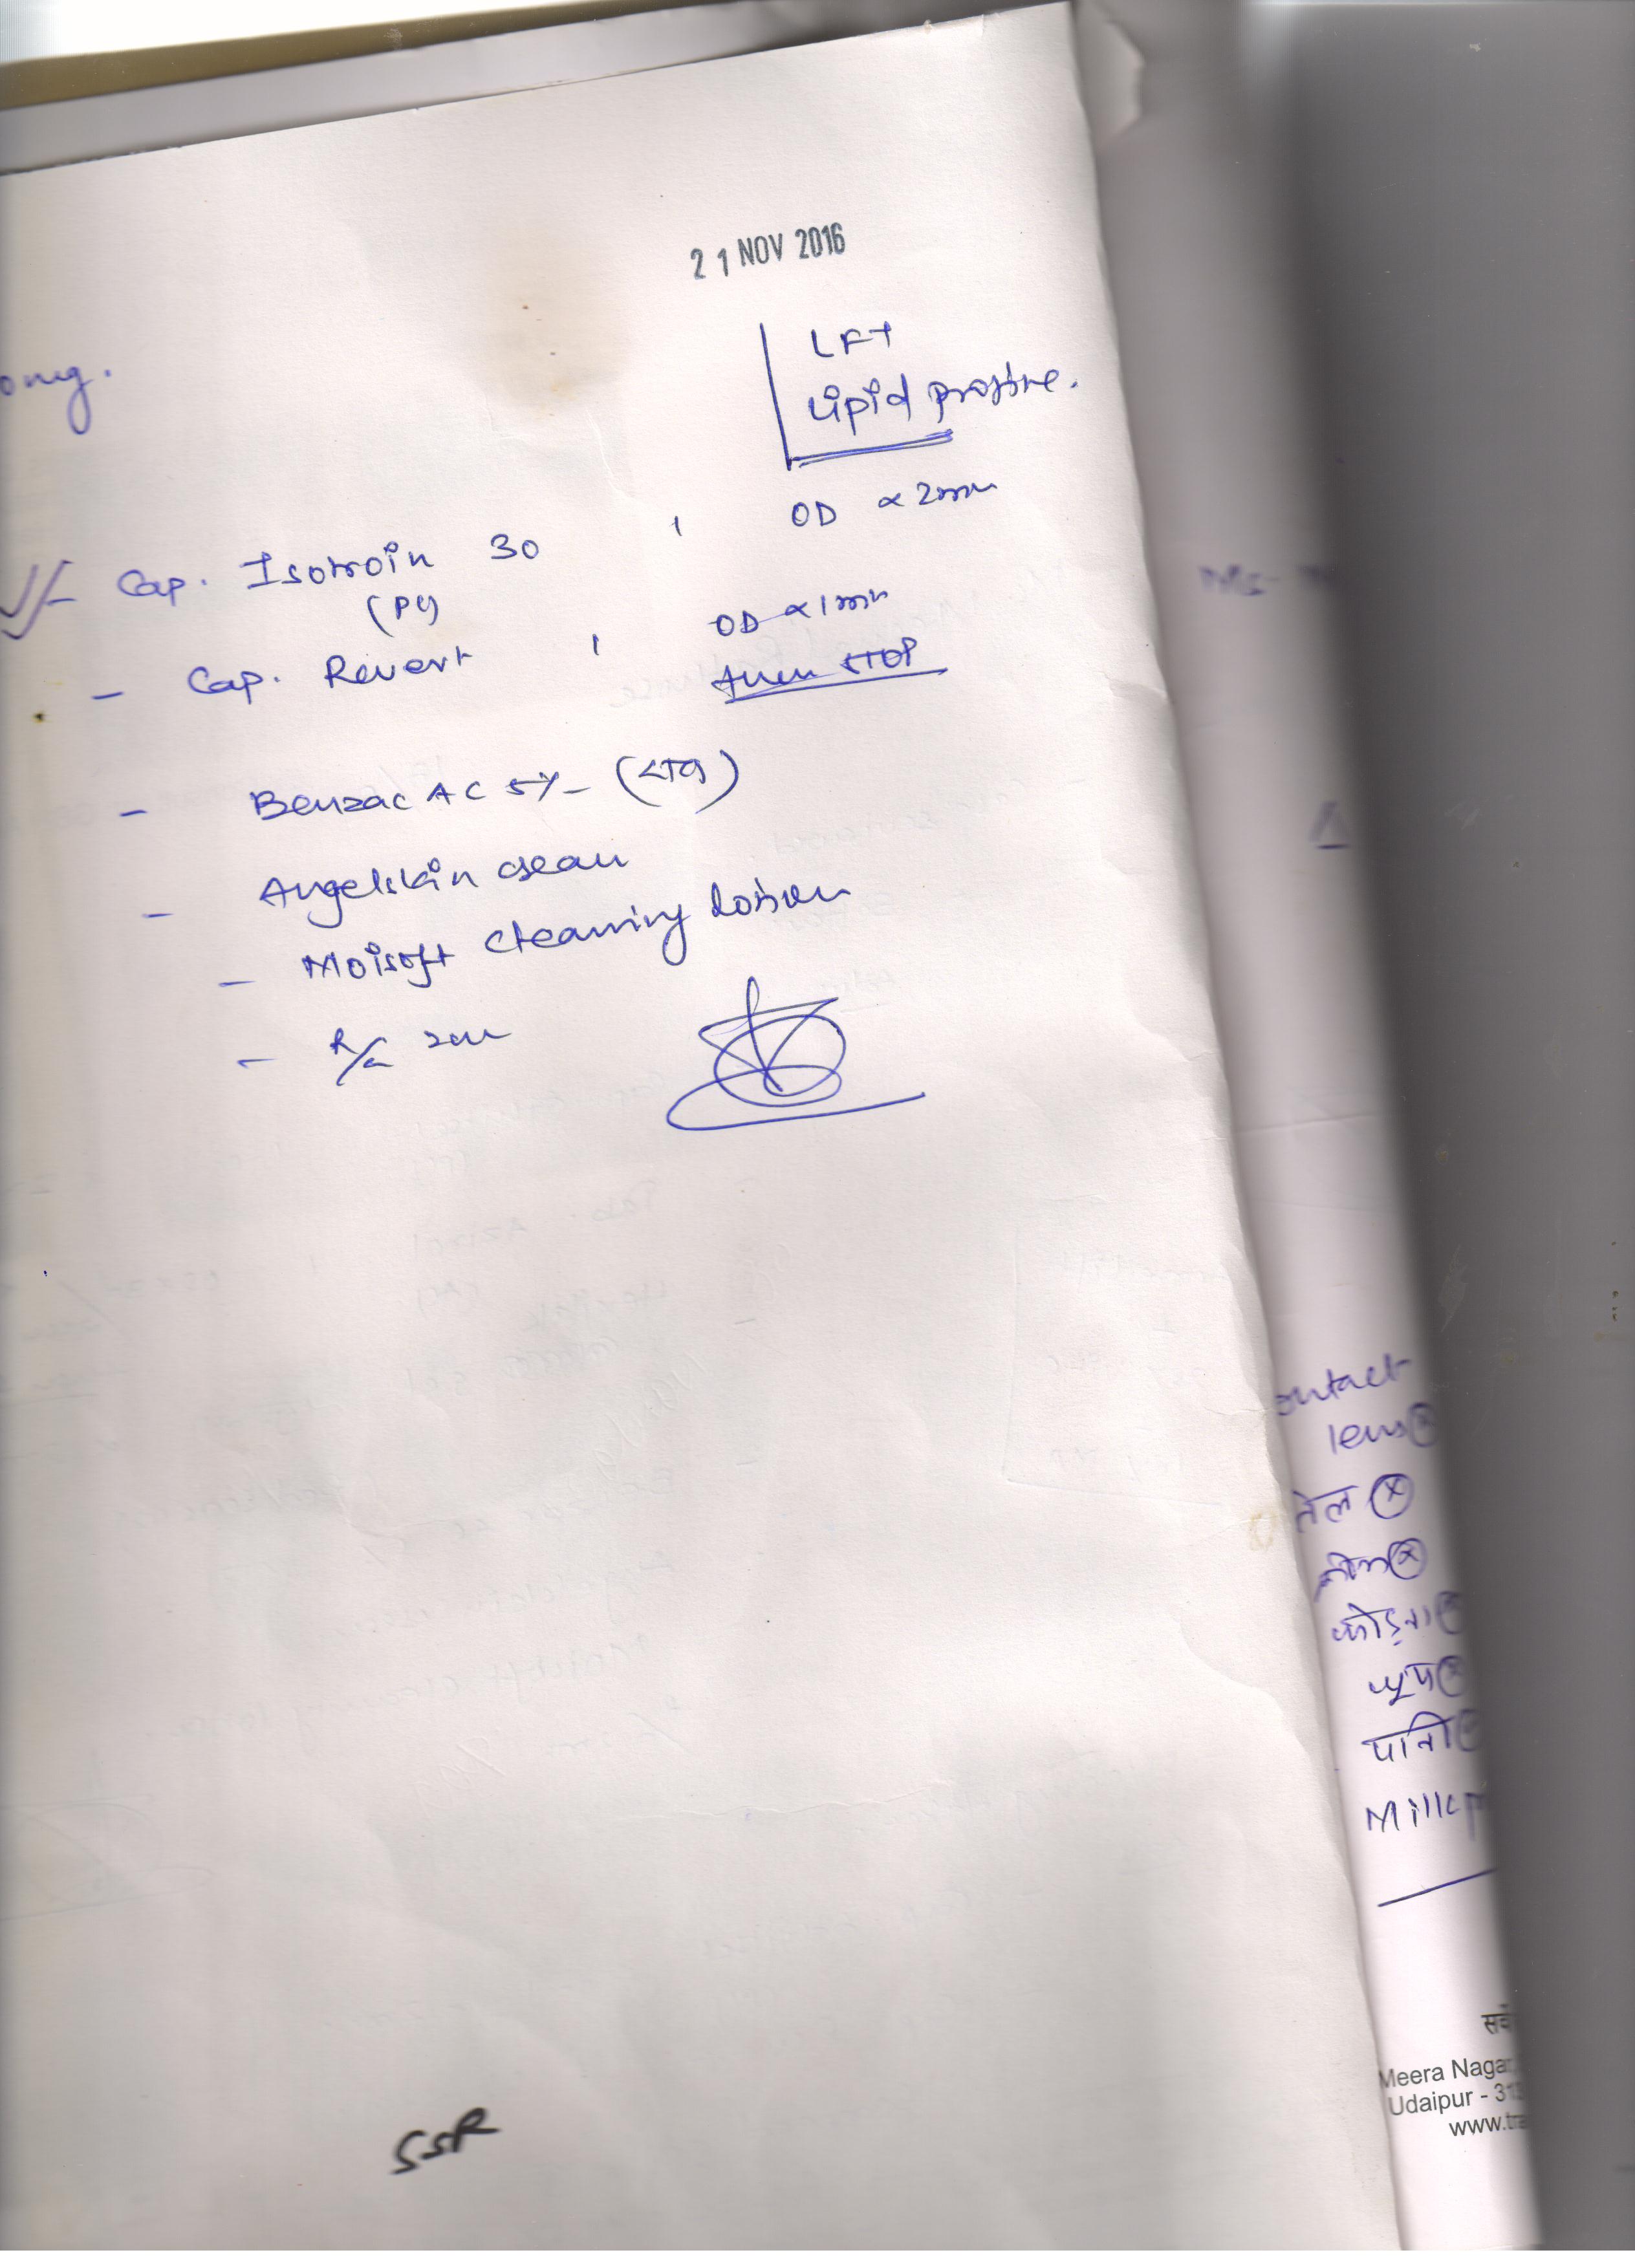 21 NOV 2016
omg.
LFT
Lipid profile.
- Cap. Isotroin 30 , OD x 2
(P4)
- Cap. Revert , OD x 1
then STOP
- Benzac AC 5%
- Angelskin clean
- Moisoft cleaning lotion
- R/A
SSR
ontact
lens
तेल
फोड़ना
धूप
पानी
Milk
सर्व
Meera Nagar
Udaipur - 31
www.tra